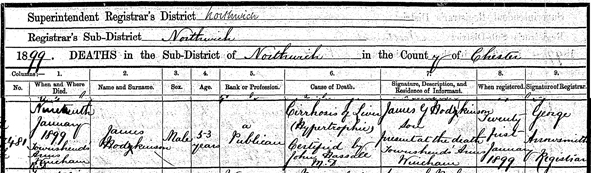 Superintendent Registrar's District Northwich
Registrar's Sub-District Northwich
1899. DEATHS in the Sub-District of Northwich in the County of Chester
Columns:— 1. 2. 3. 4. 5. 6. 7. 8. 9.
No. When and Where Died. Name and Surname. Sex. Age. Rank or Profession. Cause of Death. Signature, Description, and Residence of Informant. When registered. Signature of Registrar.
481
Nineteenth
January
1899
Townshends
Arms
Wincham
James
Hodgkinson
Male
53
years
a
Publican
Cirrhosis of Liver
(Hypertrophic)
Certified by
John Hassall
M.D.
James G Hodgkinson
Son
present at the death
Townshends Arms
Wincham
Twenty
first
January
1899
George
Arrowsmith
Registrar